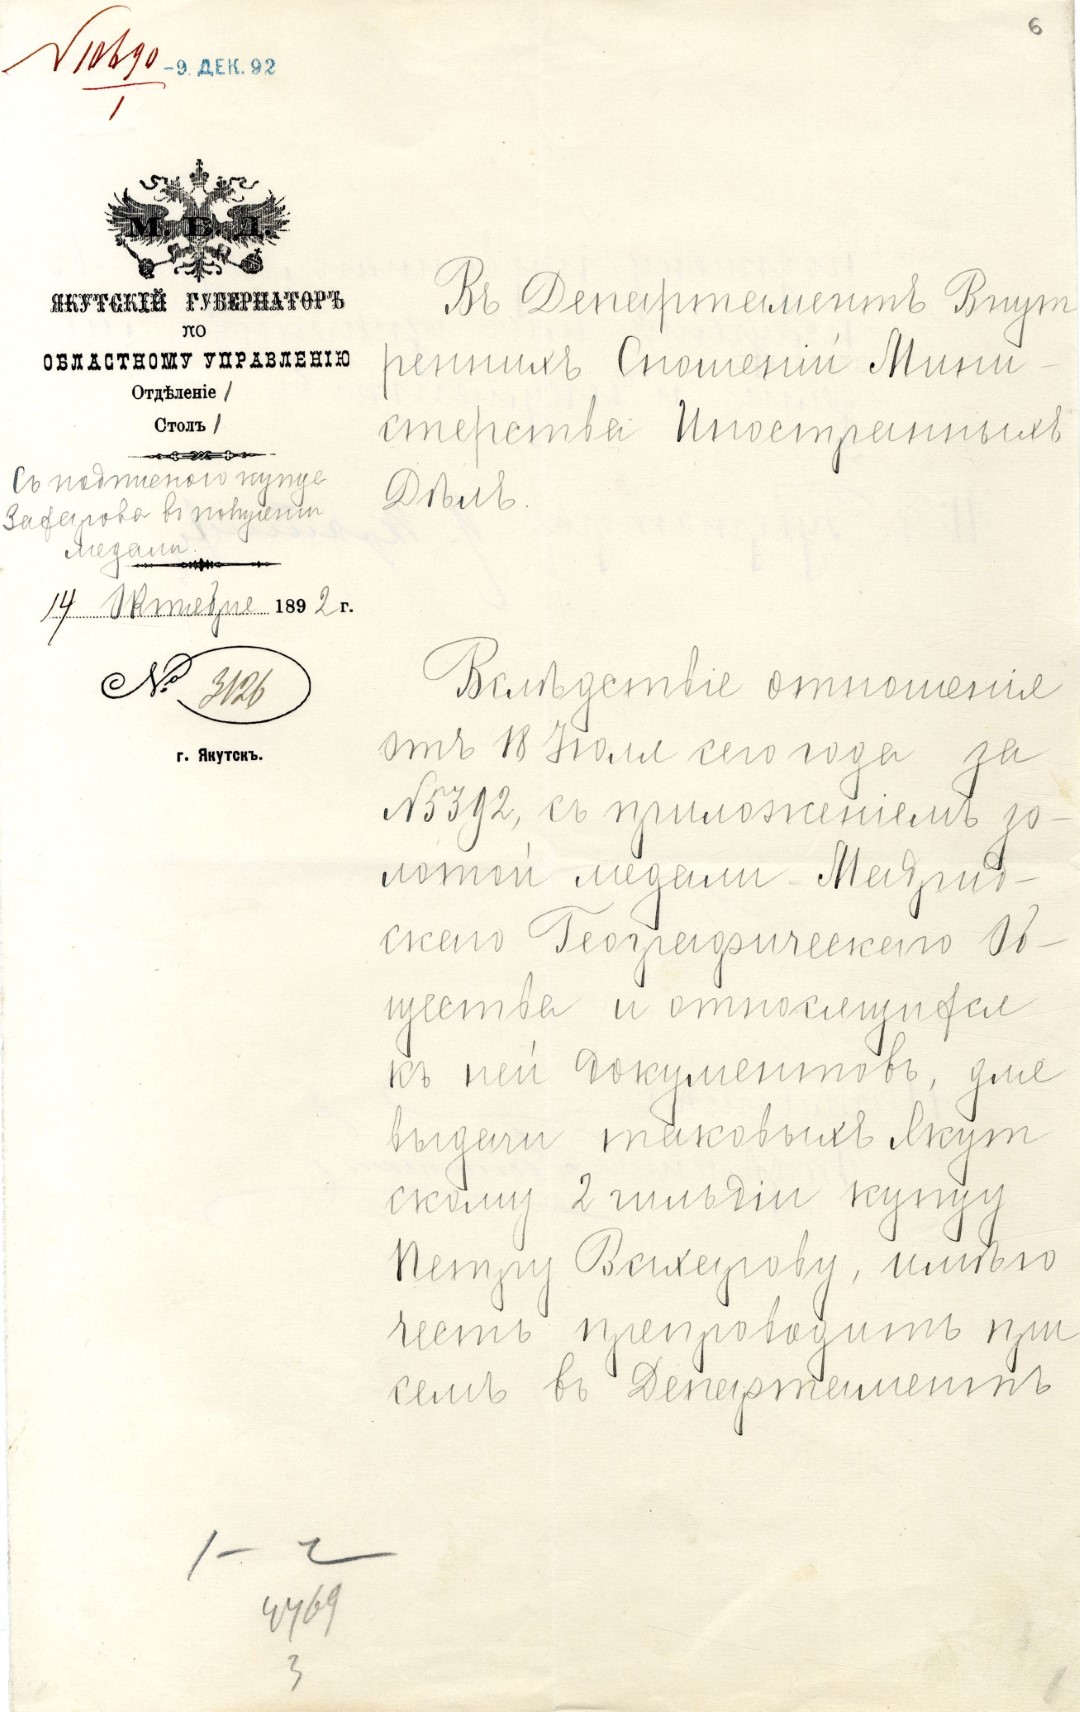 6
-9. ДЕК. 92
1
М. В. Д.
ЯКУТСКІЙ ГУБЕРНАТОРЪ
ПО
ОБЛАСТНОМУ УПРАВЛЕНІЮ
Отдѣленіе 1
Столъ 1
Съ
купца
въ полученіи
медали.
14 Октября 1892 г.
№ 3126
г. Якутскъ.
Въ Департаментъ Внут
реннихъ Сношеній Мини-
стерства Иностранныхъ
Дѣлъ.
Вслѣдствіе отношенія
отъ 18 Іюля сего года за
№5392, съ приложеніемъ зо-
лотой медали Мадрид-
скаго Географическаго Об-
щества и относящихся
къ ней документовъ, для
выдачи таковыхъ Якут
скому 2 гильдіи купцу
Петру Захарову, имѣю
честь препроводить при
семъ въ Департаментъ
4769
3